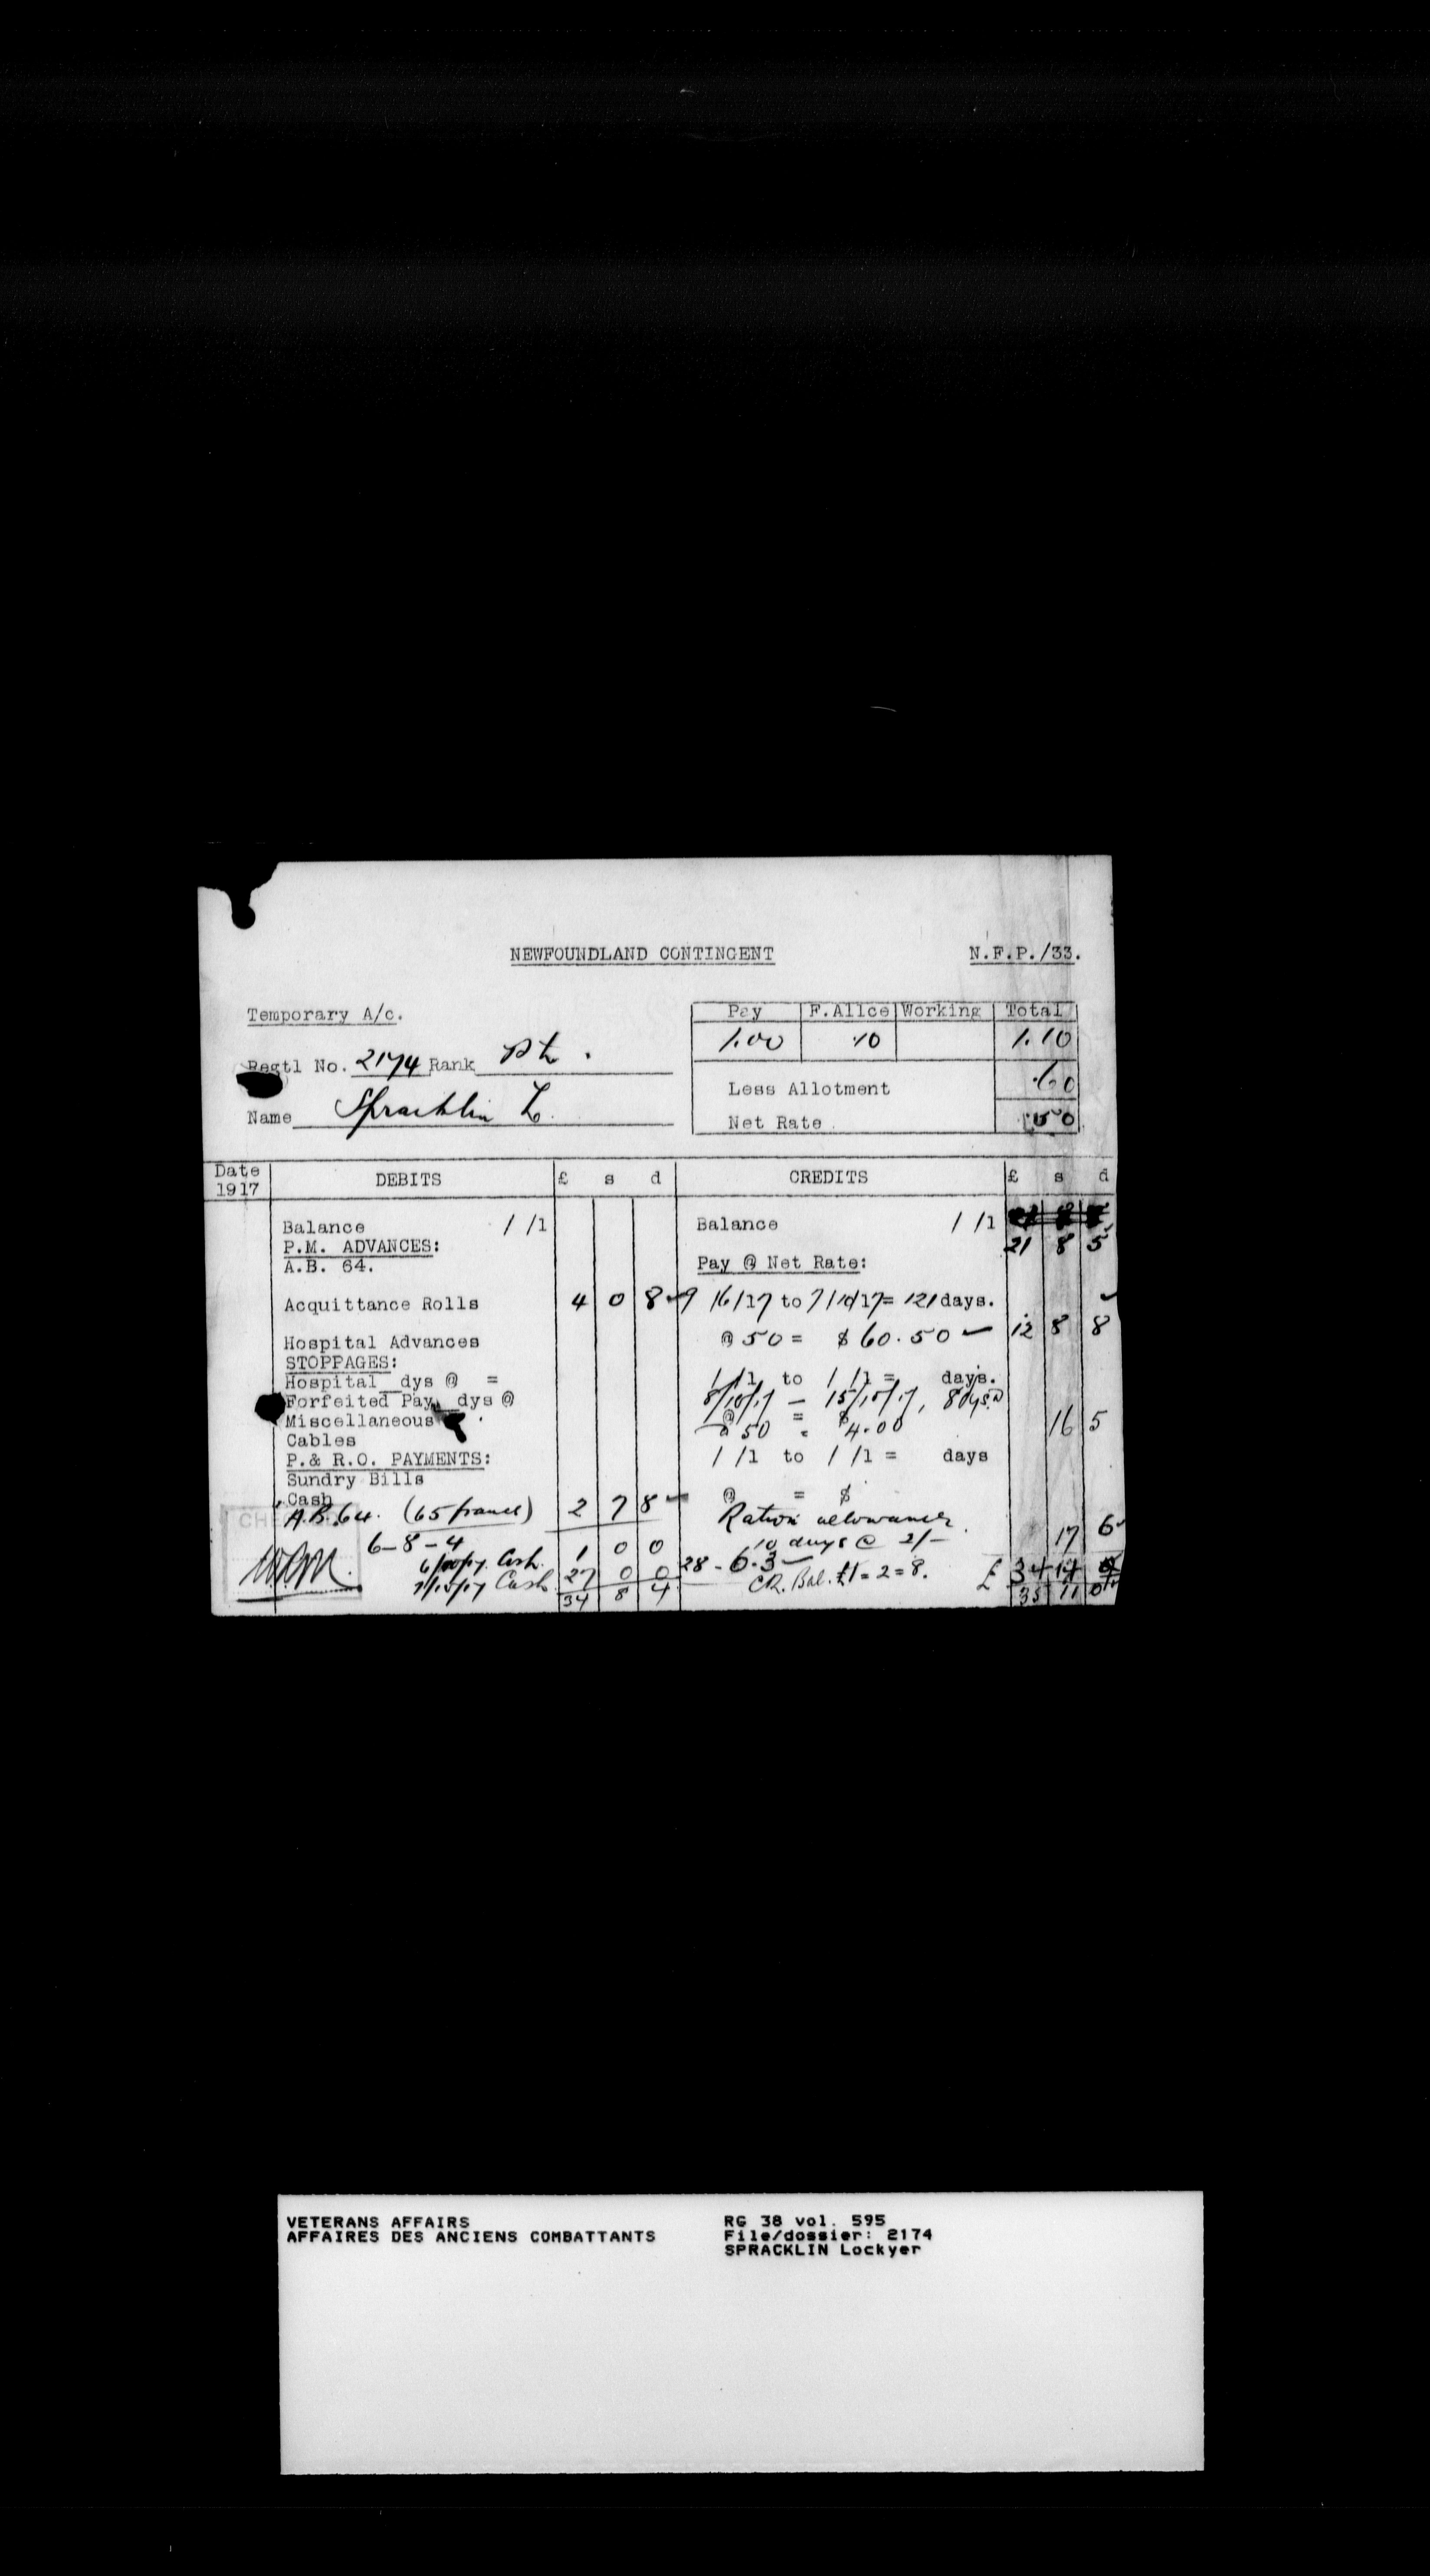 NEWFOUNDLAND CONTINGENT N.F.P./33.
Temporary A/c.
Pay F.Allce Working Total
1.00 .10 1.10
Regtl No. 2174 Rank Pte.
Less Allotment .60
Name Spracklin L.
Net Rate .50
Date 1917 DEBITS £ s d CREDITS £ s d
Balance / /1 Balance / /1
P.M. ADVANCES: 21 8 5
A.B. 64. Pay @ Net Rate:
Acquittance Rolls 4 0 8 9/6/17 to 7/10/17 = 121 days.
Hospital Advances @ 50 = $ 60.50 12 8 8
STOPPAGES:
Hospital dys @ = / /1 to / /1 = days.
Forfeited Pay dys @ 8/10/17 - 15/10/17, 8 dys @
Miscellaneous @ = $
50 = 4.00 16 5
Cables
P.& R.O. PAYMENTS: / /1 to / /1 = days
Sundry Bills
Cash @ = $
A.B. 64. (65 francs) 2 7 8 Ration allowance
6-8-4 10 days @ 2/- 17 6
Cash. 1 0 0 28-6.3
7/10/17 Cash 27 0 0 CR. Bal. £1=2=8. £ 34 14
34 8 4 35 11 0
VETERANS AFFAIRS RG 38 vol. 595
AFFAIRES DES ANCIENS COMBATTANTS File/dossier: 2174
SPRACKLIN Lockyer